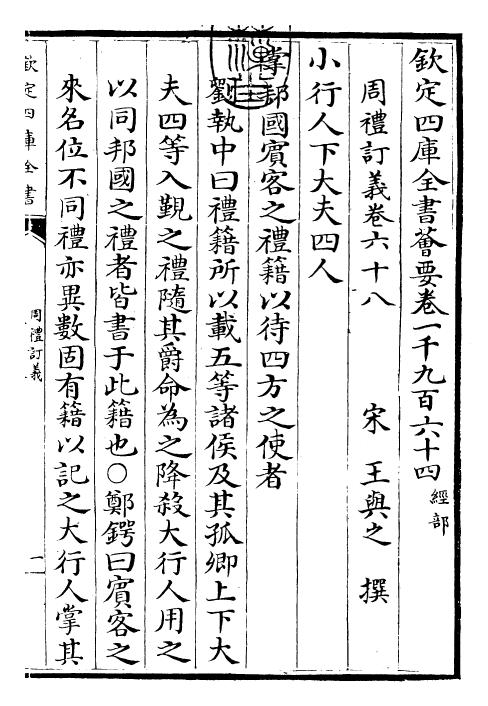 欽定四庫全書薈要卷一千九百六十四 經部
周禮訂義卷六十八
宋 王與之 撰
小行人下大夫四人
掌邦國賓客之禮籍以待四方之使者
劉執中曰禮籍所以載五等諸侯及其孤卿上下大
夫四等入覲之禮隨其爵命為之降殺大行人用之
以同邦國之禮者皆書于此籍也○鄭鍔曰賓客之
來名位不同禮亦異數固有籍以記之大行人掌其
欽定四庫全書
周禮訂義
一